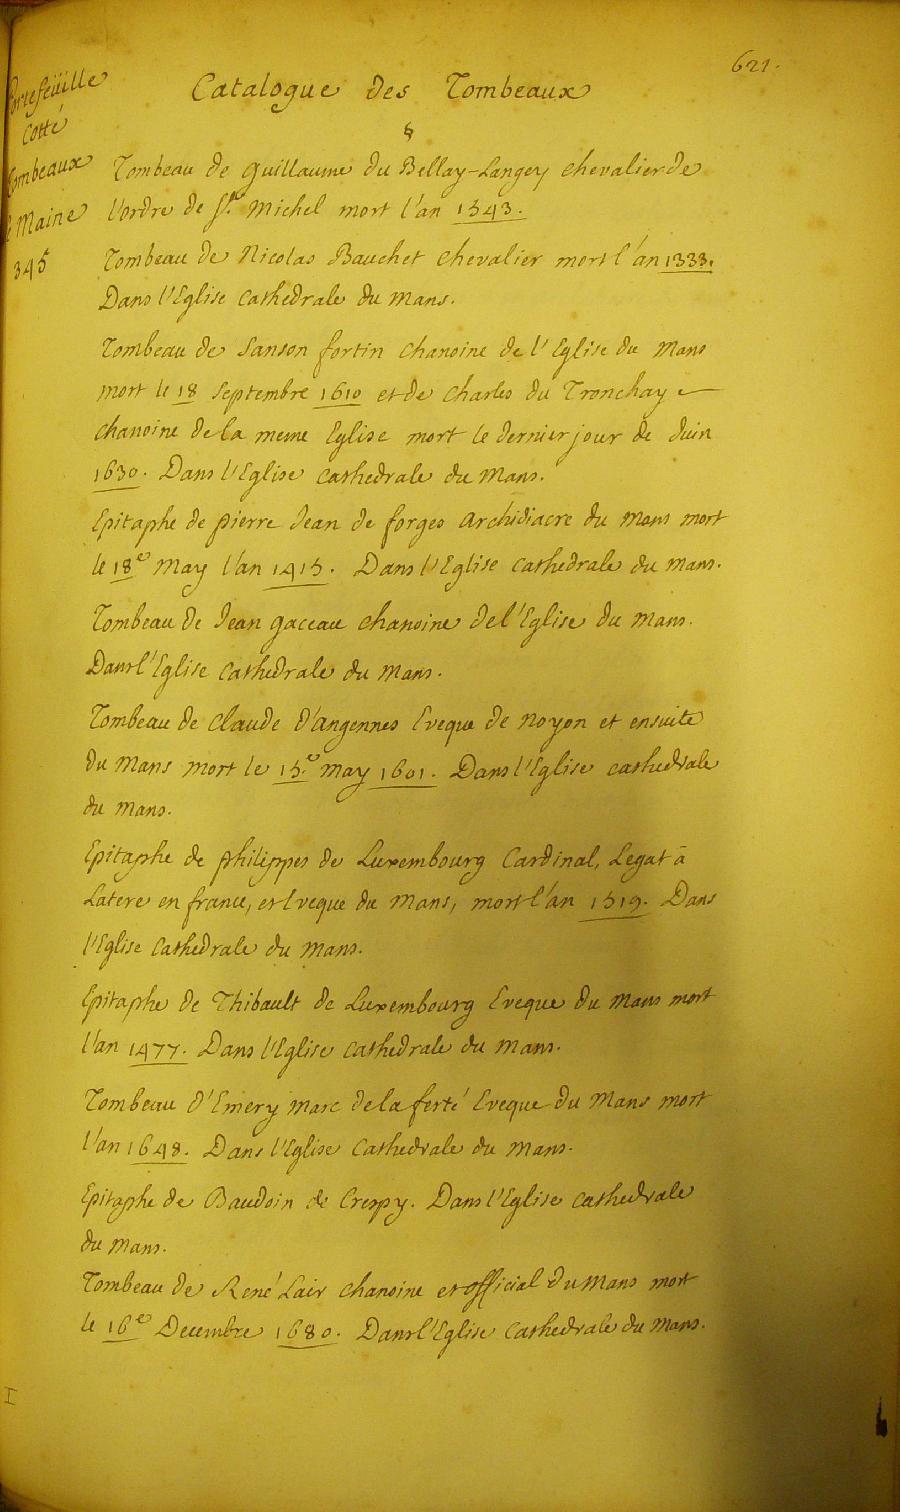 621.
Portefeüille
Cotté
Tombeaux
le Maine
345
Catalogue des Tombeaux
§
Tombeau de Guillaume du Bellay-Langey chevalier de
l'ordre de St. Michel mort l'an 1543.
Tombeau de Nicolas Bauchet chevalier mort l'an 1333.
Dans l'Eglise cathedrale du Mans.
Tombeau de Sanson fortin chanoine de l'Eglise du Mans
mort le 18 septembre 1610 et de charles du Tronchay
chanoine de la meme Eglise mort le dernier jour de Juin
1630. Dans l'Eglise cathedrale du Mans.
Epitaphe de pierre Jean de forges archidiacre du Mans mort
le 18e May l'an 1415. Dans l'Eglise cathedrale du Mans.
Tombeau de Jean gaceau chanoine de l'Eglise du Mans.
Dans l'Eglise cathedrale du Mans.
Tombeau de claude d'angennes Eveque de noyon et ensuite
du Mans mort le 15.e may 1601. Dans l'Eglise cathedrale
du Mans.
Epitaphe de philippes de Luxembourg Cardinal, Legat à
Latere en france, et Eveque du Mans, mort l'an 1519. Dans
l'Eglise cathedrale du Mans.
Epitaphe de Thibault de Luxembourg Eveque du Mans mort
l'an 1477. Dans l'Eglise cathedrale du Mans.
Tombeau d'Emery Marc de la ferté Eveque du Mans mort
l'an 1648. Dans l'Eglise cathedrale du Mans.
Epitaphe de Baudoin de Crespy. Dans l'Eglise cathedrale
du Mans.
Tombeau de René Lair chanoine et official du Mans mort
le 16e Decembre 1680. Dans l'Eglise cathedrale du Mans.
I